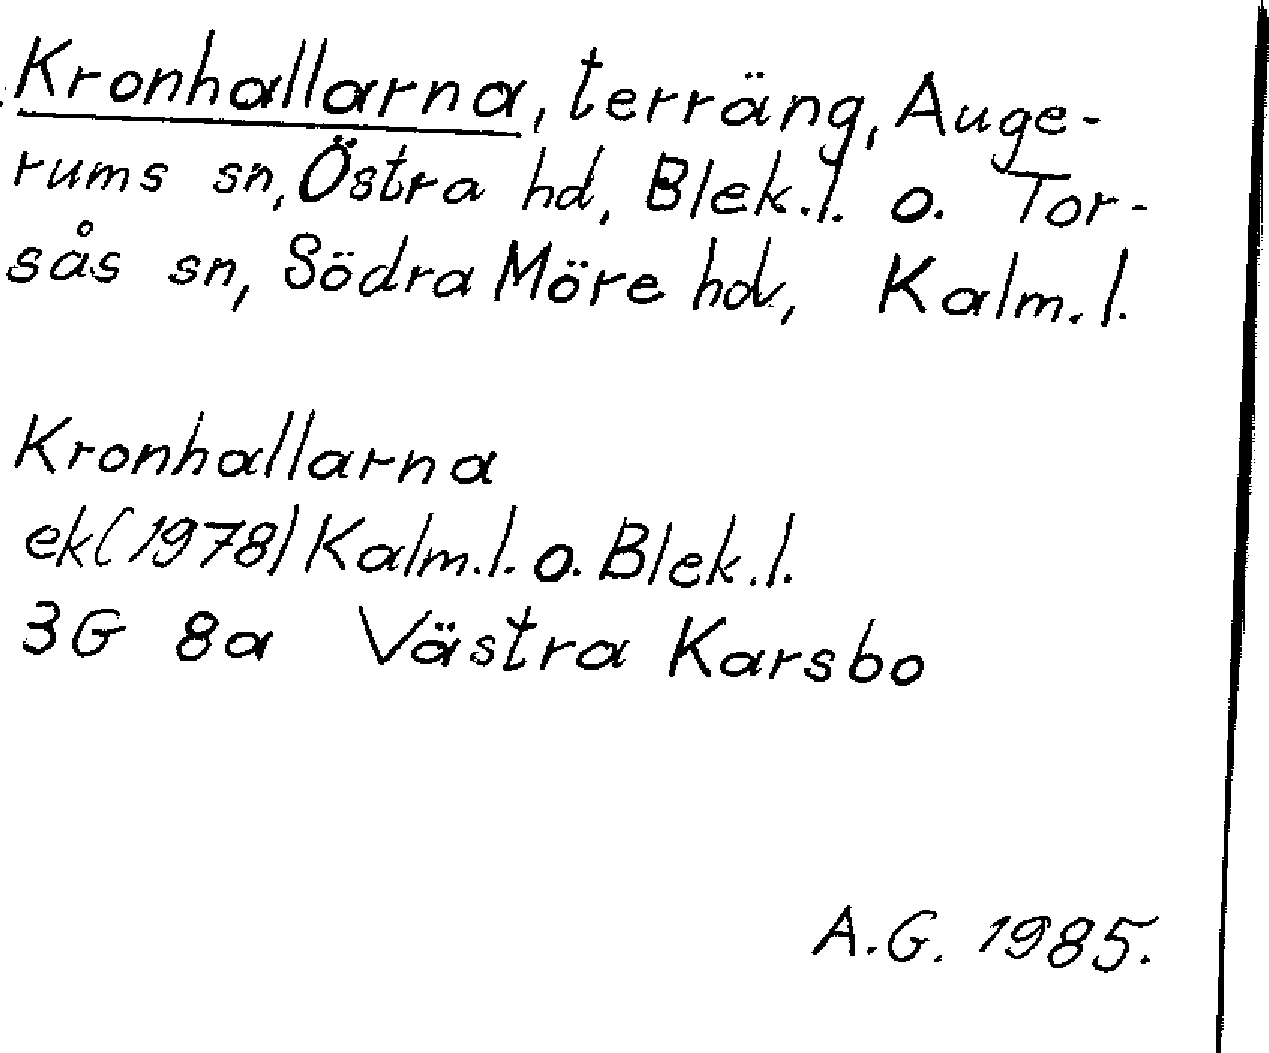 Kronhallarna, terräng, Auge-
rums sn, Östra hd, Blek.l. o. Tor-
sås sn, Södra Möre hd, Kalm.l.
Kronhallarna
ek(1978) Kalm.l. o. Blek.l.
3G 8a Västra Karsbo
A.G. 1985.